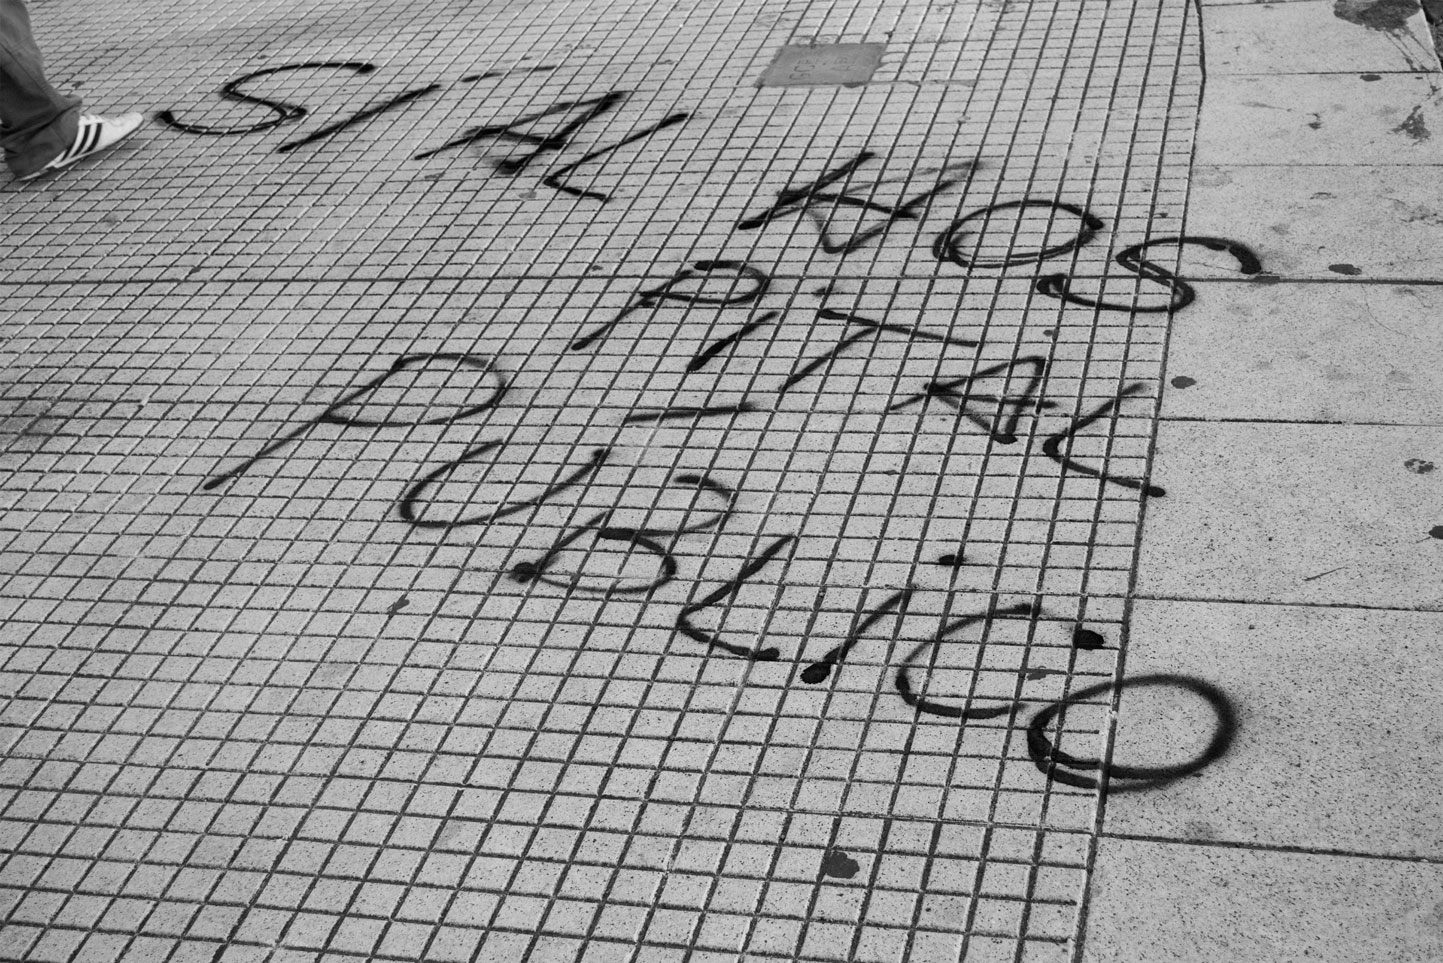 SI AL HOS
PITAL
PÚBLICO